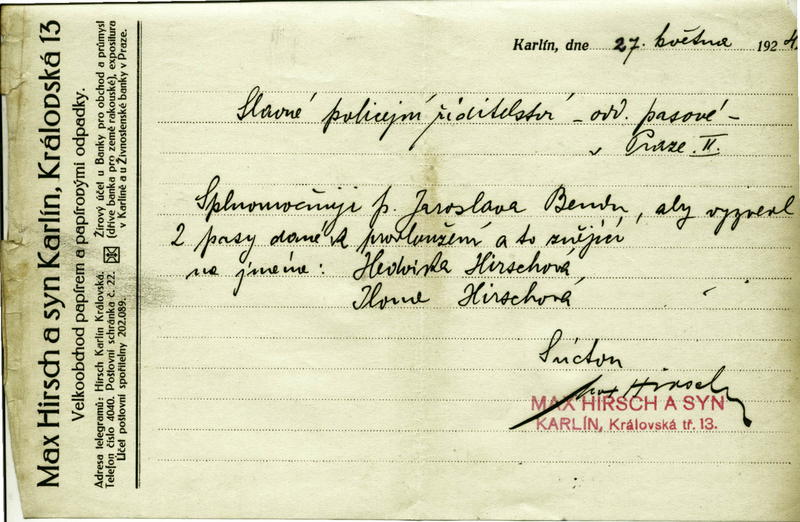 Max Hirsch a syn Karlín, Královská 13
Velkoobchod papírem a papírovými odpadky.
Adresa telegramů: Hirsch Karlín Královská.
Telefon číslo 4040. Poštovní schránka č. 22.
Účet poštovní spořitelny 202.089.
Žirový účet u Banky pro obchod a průmysl
(dříve banka pro země rakouské), expositura
v Karlíně a u Živnostenské banky v Praze.
Karlín, dne 27. května 1924.
Slavné policejní řiditelství - odd. pasové -
v Praze. II.
Splnomocňuji p. Jaroslava Bendu, aby vyzvedl
2 pasy dané k prodloužení a to znějící
na jméno: Hedvika Hirschová
Ilona Hirschová
S úctou
Max Hirsch
MAX HIRSCH A SYN
KARLÍN, Královská tř. 13.